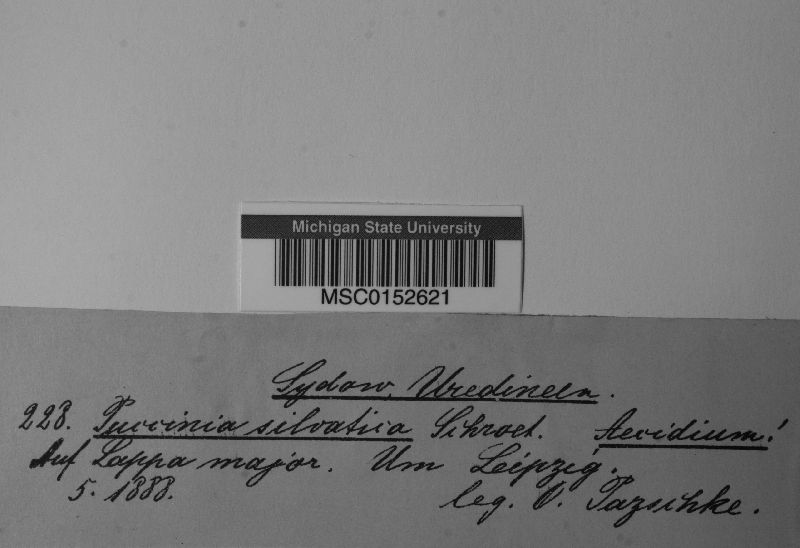 Michigan State University
MSC0152621
Sydow, Uredineen.
223. Puccinia silvatica Schroet. Aecidium!
Auf Lappa major. Um Leipzig.
5. 1888. leg. O. Pazschke.